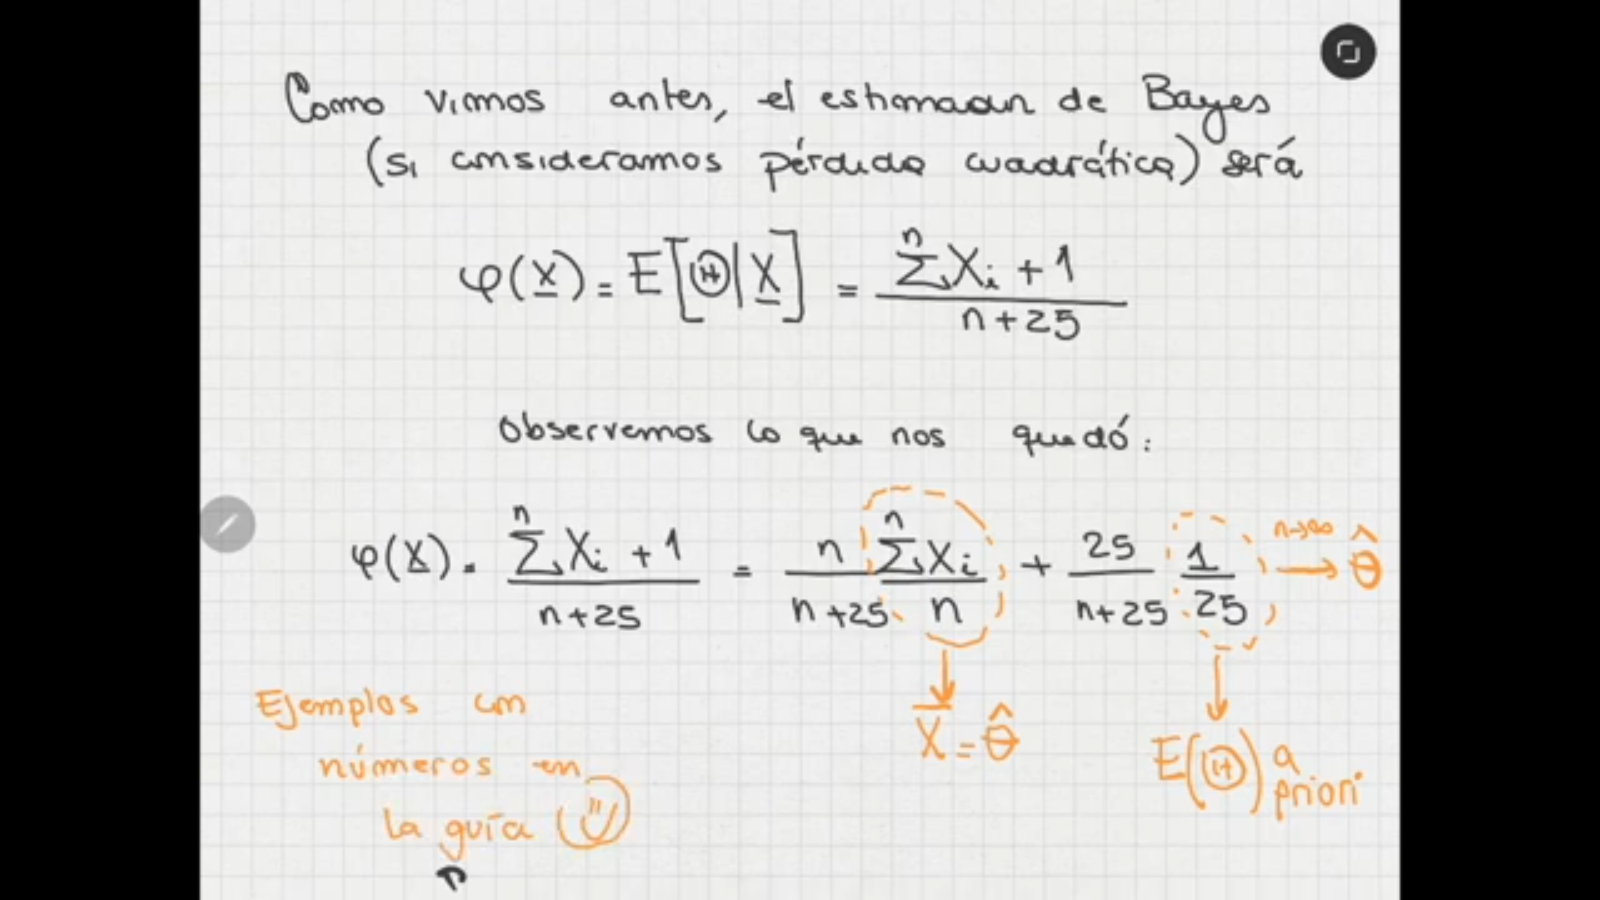 Como vimos antes, el estimador de Bayes
(si consideramos pérdida cuadrática) será
φ(X) = E[Θ|X] = (∑ⁿ Xᵢ + 1) / (n+25)
Observemos lo que nos quedó:
φ(X) = (∑ⁿ Xᵢ + 1) / (n+25) = n/(n+25) (∑ⁿ Xᵢ)/n + 25/(n+25) 1/25 n→∞ → θ̂
X̄ = θ̂
E(Θ) a priori
Ejemplos con
números en
la guía